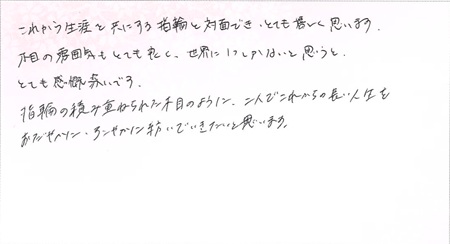 これから生涯を共にする指輪と対面でき、とても嬉しく思います。
木目の雰囲気もとても良く、世界に1つしかないと思うと、
とても感慨深いです。
指輪の積み重ねられた木目のように、二人でこれからの長い人生を
おだやかに、すこやかに紡いでいきたいと思います。